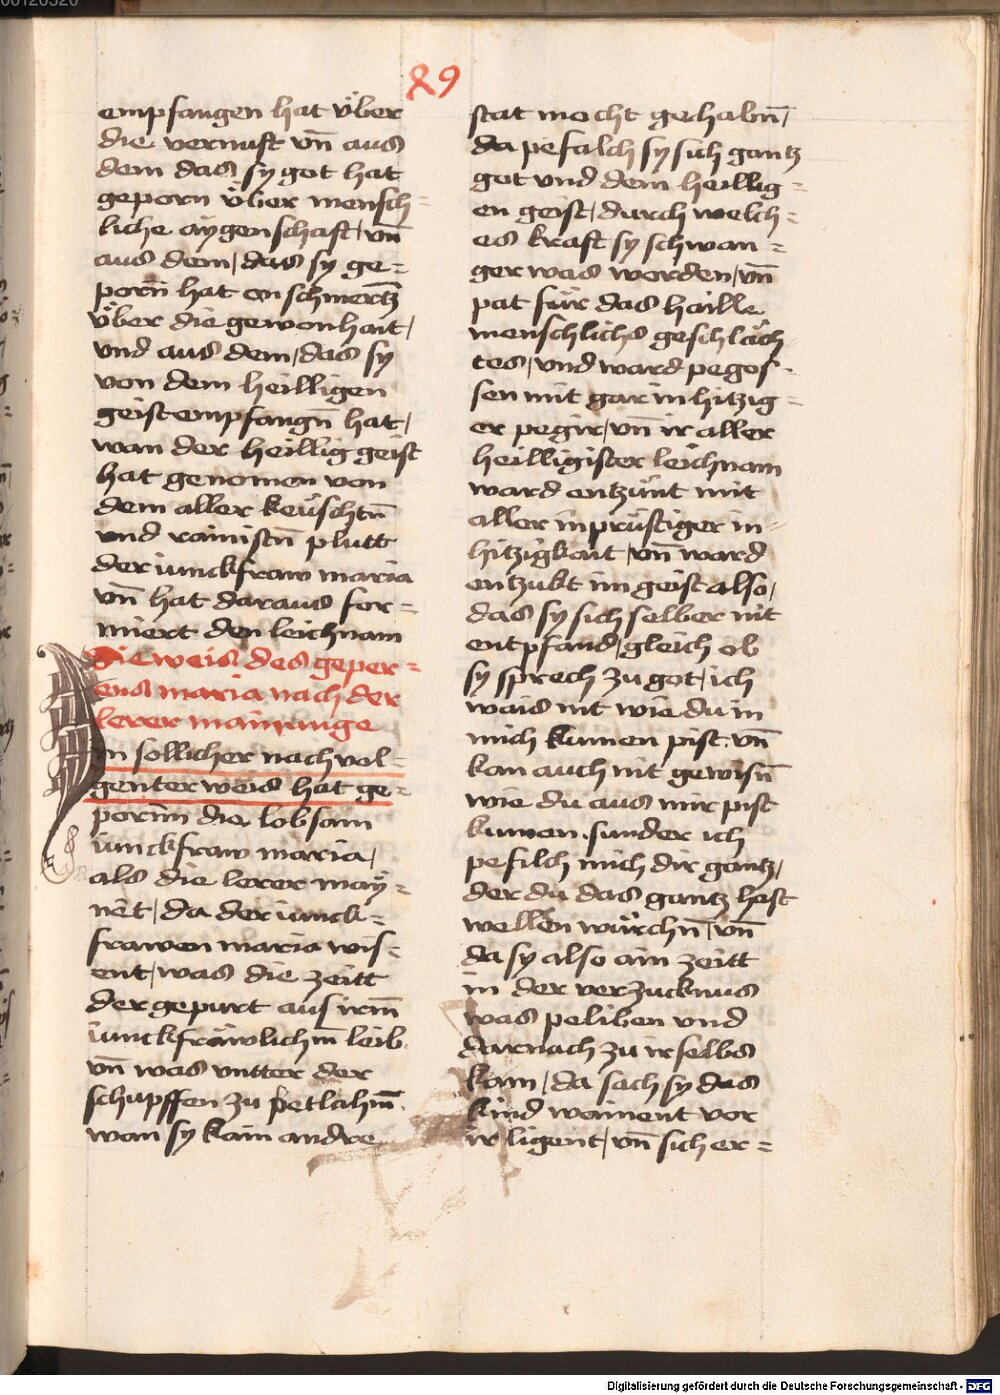 00120320
89
empfangen hat vͤber
die vernuft vn̄ aus
dem das sy got hat
geporn vͤber mensch=
liche aÿgenschaft / vn̄
aus dem / das sy ge=
porn̄ hat on schmertz
vͤber die gewonhait /
vnd aus dem / das sy
von dem heilligen
geist empfangn̄ hat /
wan der heillig geist
hat genomen von
dem aller keuͤschtn̄
vnd rainistn̄ plutt
der iunckfraw maria
vn̄ hat daraus for=
miert den leichnam
Die weis des geper=
ens maria nach der
lerer mainunge
In sollicher nach vol=
genter weis hat ge=
porn̄ die lobsam
iunckfraw maria /
als die lerer maÿ=
nēt / da der iunck=
frawen maria wis=
ent / was die zeitt
der gepurt aus irm̄
iunckfräwlichm̄ leib
vn̄ was vntter der
schupffen zu petlahm̄
wan sy kain andre
stat mocht gehabn̄ /
da pefalch sy sich gantz
got vnd dem heillig=
en geist / durch welch=
es kraft sy schwan=
ger was worden / vn̄
pat für das haille
menschlichs geschläch
tes / vnd ward pegos=
sen mit gar inhitzig=
er pegir / vn̄ ir aller
heilligister leichnam
ward entzünt mit
aller inprüstiger in=
hitzigkait / vn̄ ward
entzukt im geist also /
das sy sich selber nit
entpfand / gleich ob
sy sprech zu got / ich
wais nit wie du in
mich kumen pist vn̄
kan auch nit gewisn̄
wie du aus mir pist
kumen sunder ich
pefilch mich dir gantz /
der du das gantz hast
wellen würchn̄ / vn̄
da sy also ain zeitt
in der verzucknus
was peliben vnd
darnach zu ir selbs
kam / da sach sy das
kind wainent vor
ir ligent / vn̄ sich er=
Digitalisierung gefördert durch die Deutsche Forschungsgemeinschaft - DFG